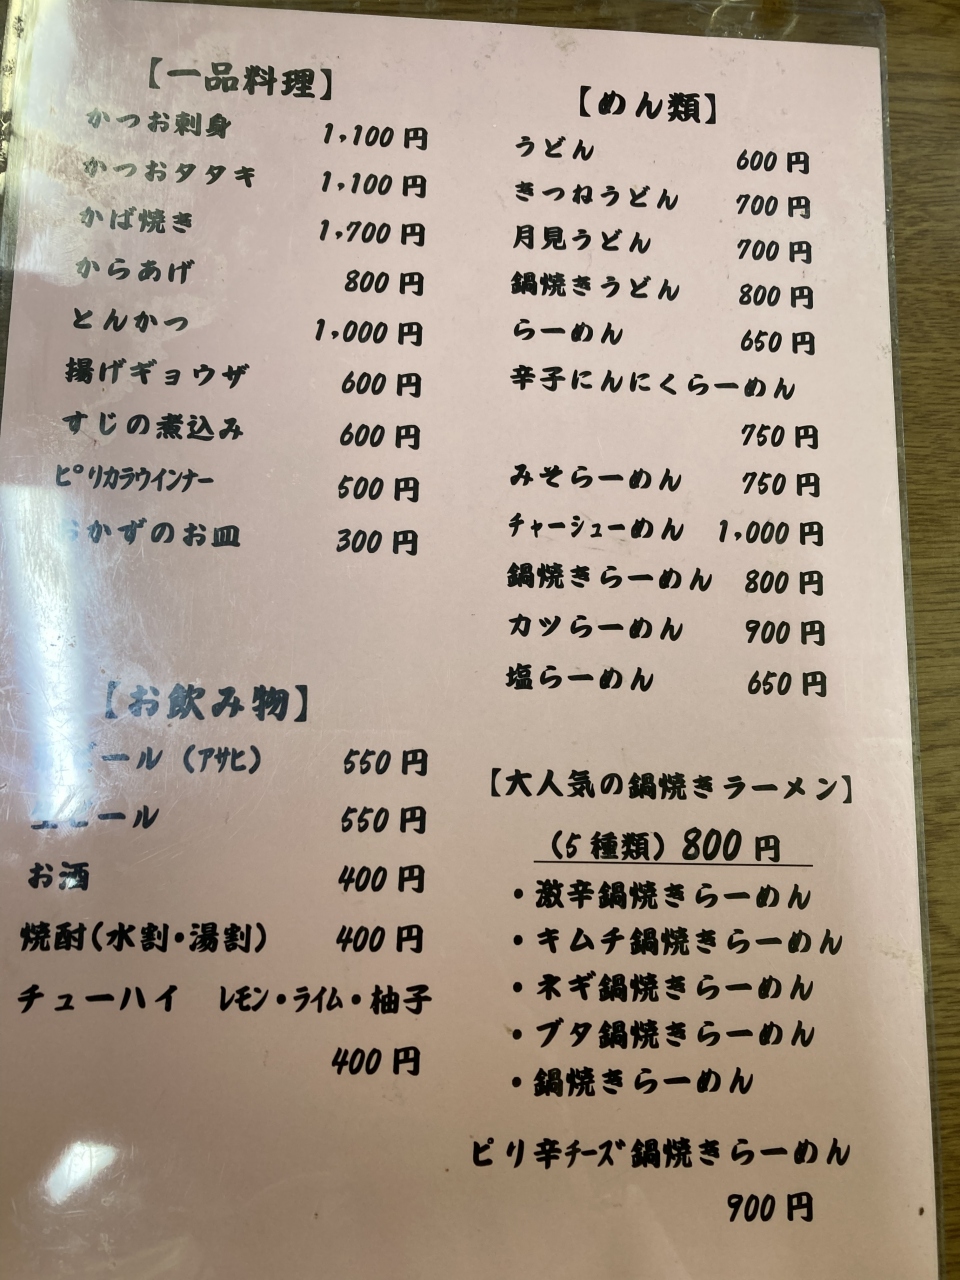 【一品料理】
かつお刺身 1,100円
かつおタタキ 1,100円
かば焼き 1,700円
からあげ 800円
とんかつ 1,000円
揚げギョウザ 600円
すじの煮込み 600円
ピリカラウインナー 500円
おかずのお皿 300円
【お飲み物】
ビール（アサヒ） 550円
生ビール 550円
お酒 400円
焼酎（水割・湯割） 400円
チューハイ レモン・ライム・柚子
400円
【めん類】
うどん 600円
きつねうどん 700円
月見うどん 700円
鍋焼きうどん 800円
らーめん 650円
辛子にんにくらーめん
750円
みそらーめん 750円
チャーシューめん 1,000円
鍋焼きらーめん 800円
カツらーめん 900円
塩らーめん 650円
【大人気の鍋焼きラーメン】
（5種類）800円
・激辛鍋焼きらーめん
・キムチ鍋焼きらーめん
・ネギ鍋焼きらーめん
・ブタ鍋焼きらーめん
・鍋焼きらーめん
ピリ辛チーズ鍋焼きらーめん
900円